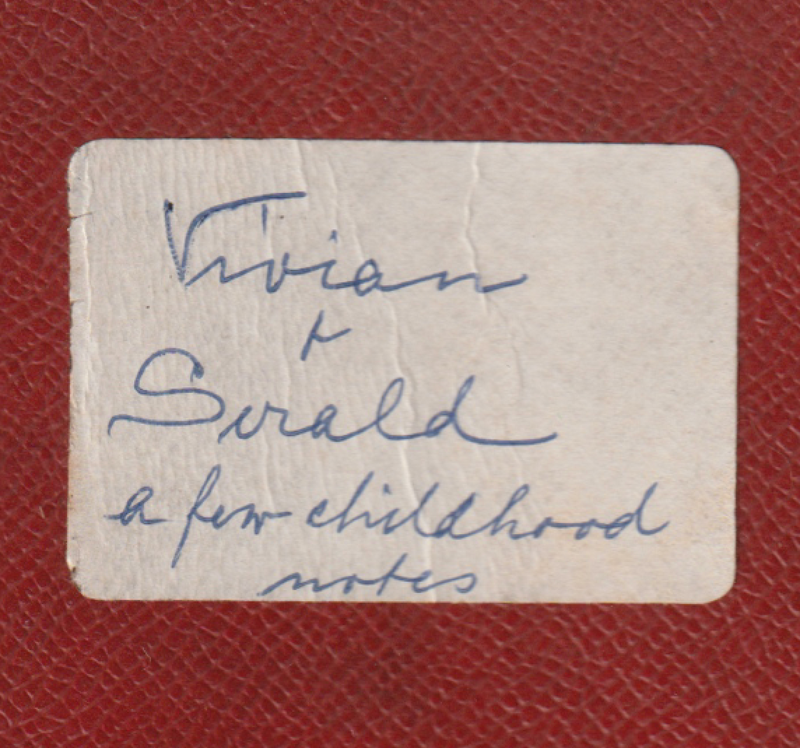 Vivian
+
Gerald
a few childhood
notes